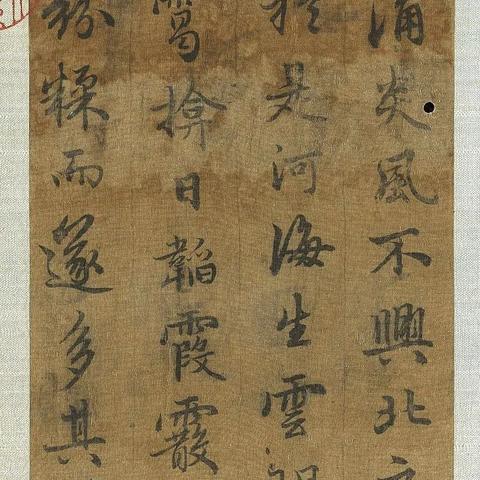 涌炎風不興北
於是河海生雲
靄揜日韜霞霰
紛糅而遂多其